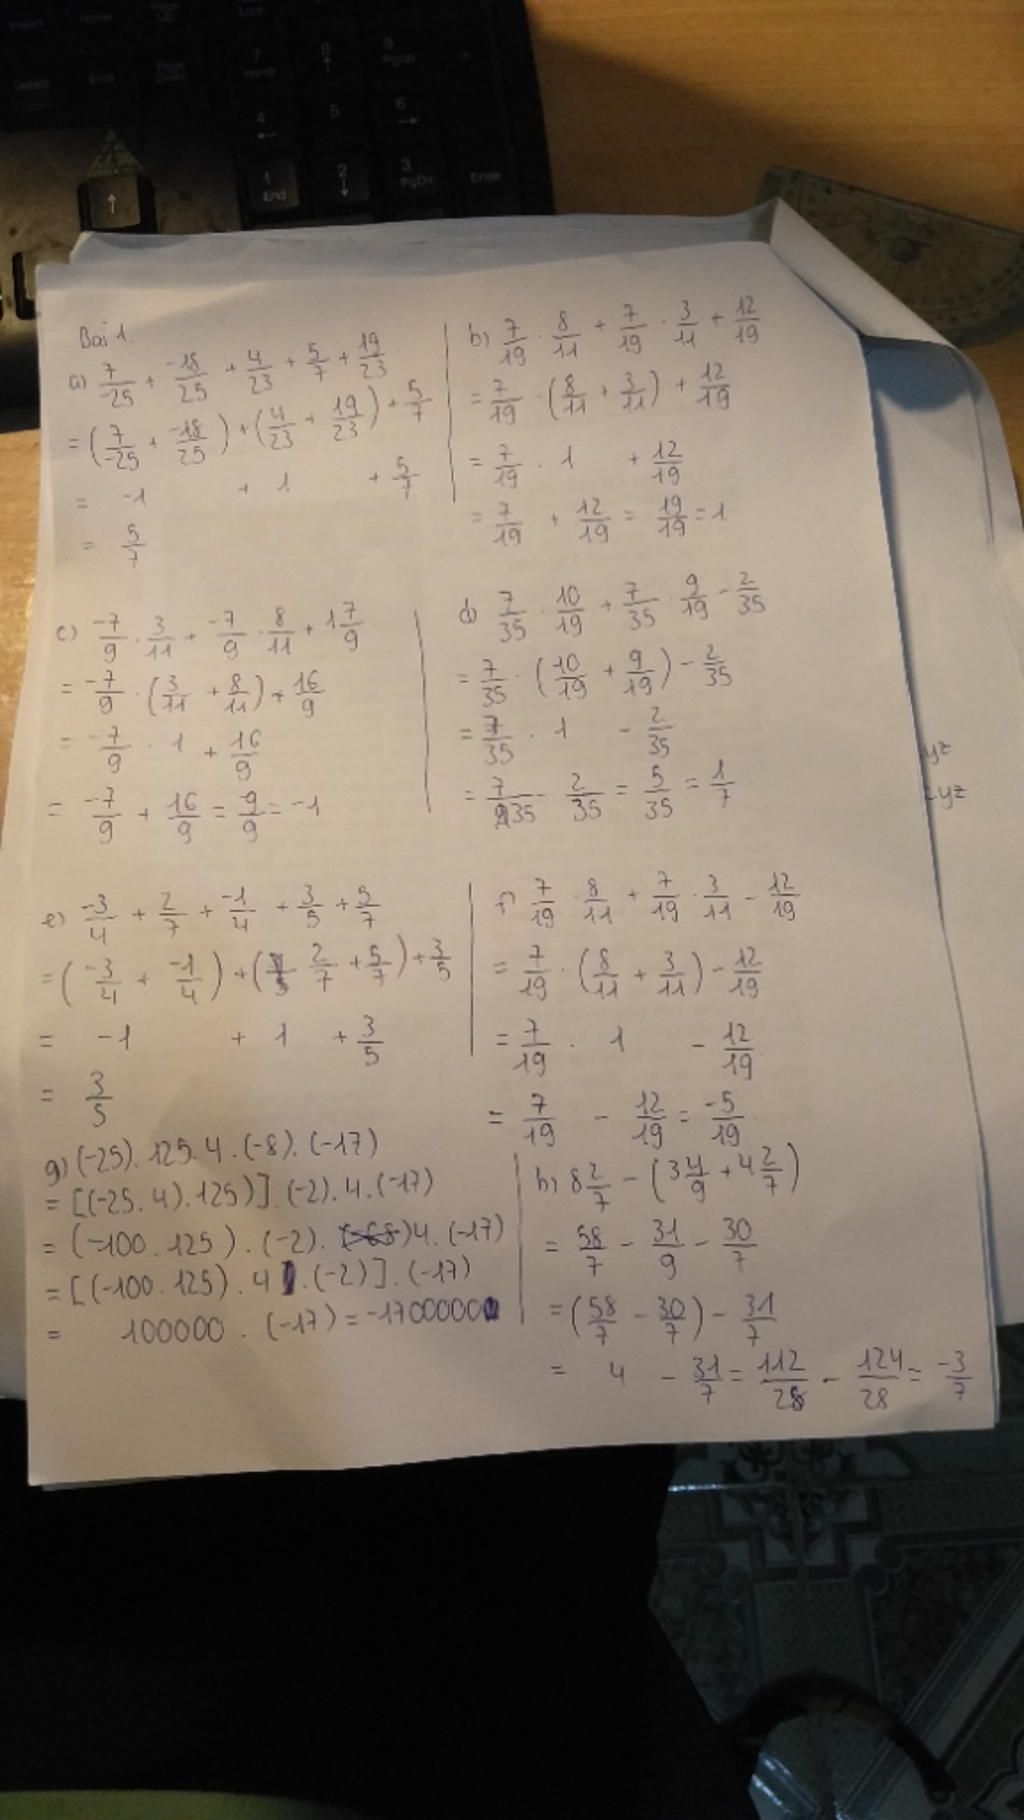 Insert Home Page Up Lock
Delete End Page Down
7 Home 8 ↑ 9 PgUp +
4 ← 5 6 →
↑ 1 End 2 ↓ 3 PgDn Enter
Bài 1.
a) 7/-25 + -18/25 + 4/23 + 5/7 + 19/23
= (7/-25 + -18/25) + (4/23 + 19/23) + 5/7
= -1 + 1 + 5/7
= 5/7
b) 7/19 . 8/11 + 7/19 . 3/11 + 12/19
= 7/19 . (8/11 + 3/11) + 12/19
= 7/19 . 1 + 12/19
= 7/19 + 12/19 = 19/19 = 1
c) -7/9 . 3/11 + -7/9 . 8/11 + 1 7/9
= -7/9 . (3/11 + 8/11) + 16/9
= -7/9 . 1 + 16/9
= -7/9 + 16/9 = -9/9 = -1
d) 7/35 . 10/19 + 7/35 . 9/19 - 2/35
= 7/35 . (10/19 + 9/19) - 2/35
= 7/35 . 1 - 2/35
= 7/35 - 2/35 = 5/35 = 1/7
e) -3/4 + 2/7 + -1/4 + 3/5 + 5/7
= (-3/4 + -1/4) + (2/7 + 5/7) + 3/5
= -1 + 1 + 3/5
= 3/5
f) 7/19 . 8/11 + 7/19 . 3/11 - 12/19
= 7/19 . (8/11 + 3/11) - 12/19
= 7/19 . 1 - 12/19
= 7/19 - 12/19 = -5/19
g) (-25). 125. 4. (-8). (-17)
= [(-25. 4). 125)] . (-2). 4. (-17)
= (-100 . 125) . (-2). 4. (-17)
= [(-100. 125). 4 . (-2)] . (-17)
= 100000 . (-17) = -1700000
h) 8 2/7 - (3 4/9 + 4 2/7)
= 58/7 - 31/9 - 30/7
= (58/7 - 30/7) - 31/7
= 4 - 31/7 = 112/28 - 124/28 = -3/7
yz
2yz